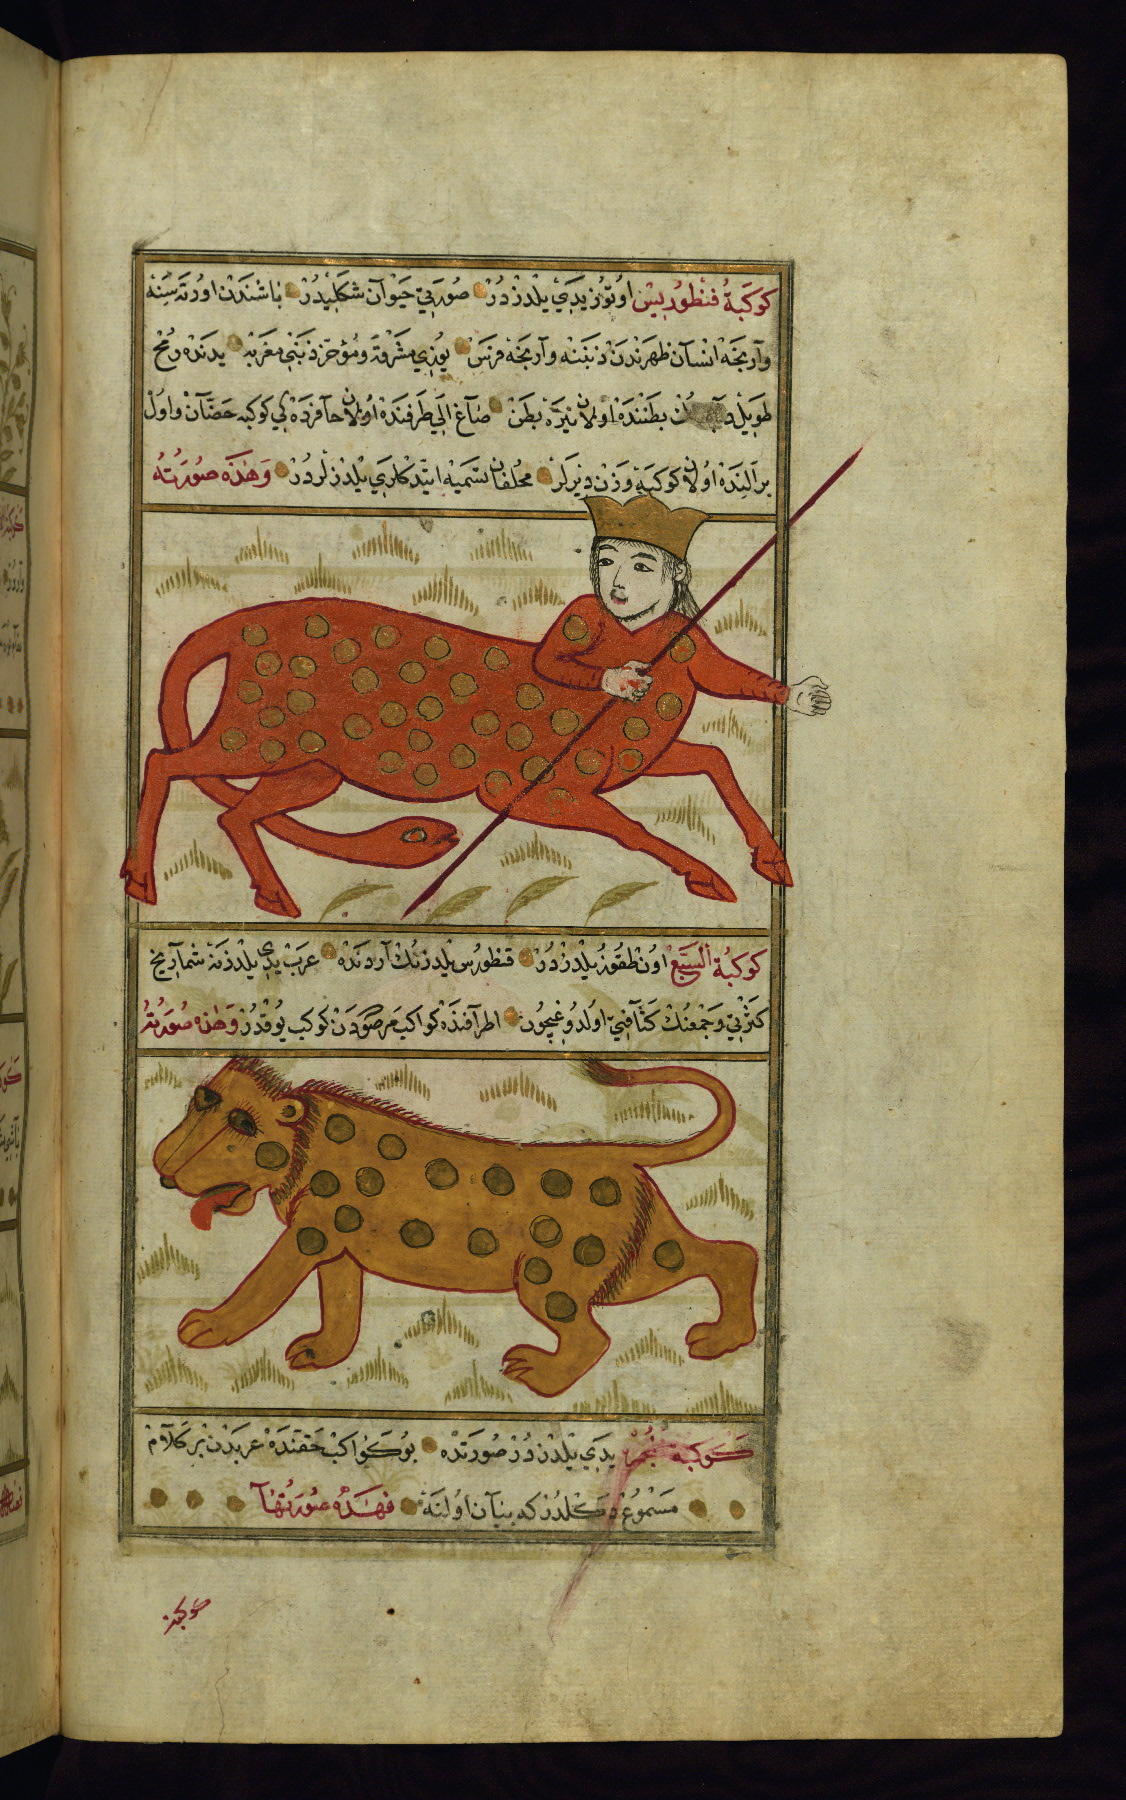 كوكبة قنطوريس اوتوز يدي يلدزدر صورتي حيوان شكليدر باشندن اورته سنه
وارنجه انسان ظهرندن ذنبنه وارنجه فرس يوزي مشرقه ومؤخر ذنبي مغربه يدنده رمح
طويل بطننده اولان نيره بطن صاغ الي طرفنده اولان حافرده كي كوكبه حضان واول
بر النده اولان كوكبه وزن ديرلر محلفان تسميه ايتدكلري يلدزلردر وهذه صورته
كوكبة السبع اون طقوز يلدزدر قنطورس يلدزنك اردنده عرب يدي يلدزنه شماريخ
كثرتي وجمعنك كثافتي اولدوغيچون اطرافنده كواكب مرصوددن كوكب يوقدر وهذه صورته
كوكبة يدي يلدزدر صورتده بو كواكب حقنده عربدن بر كلام
مسموع دكلدر كه بيان اولنه فهذه صورتها